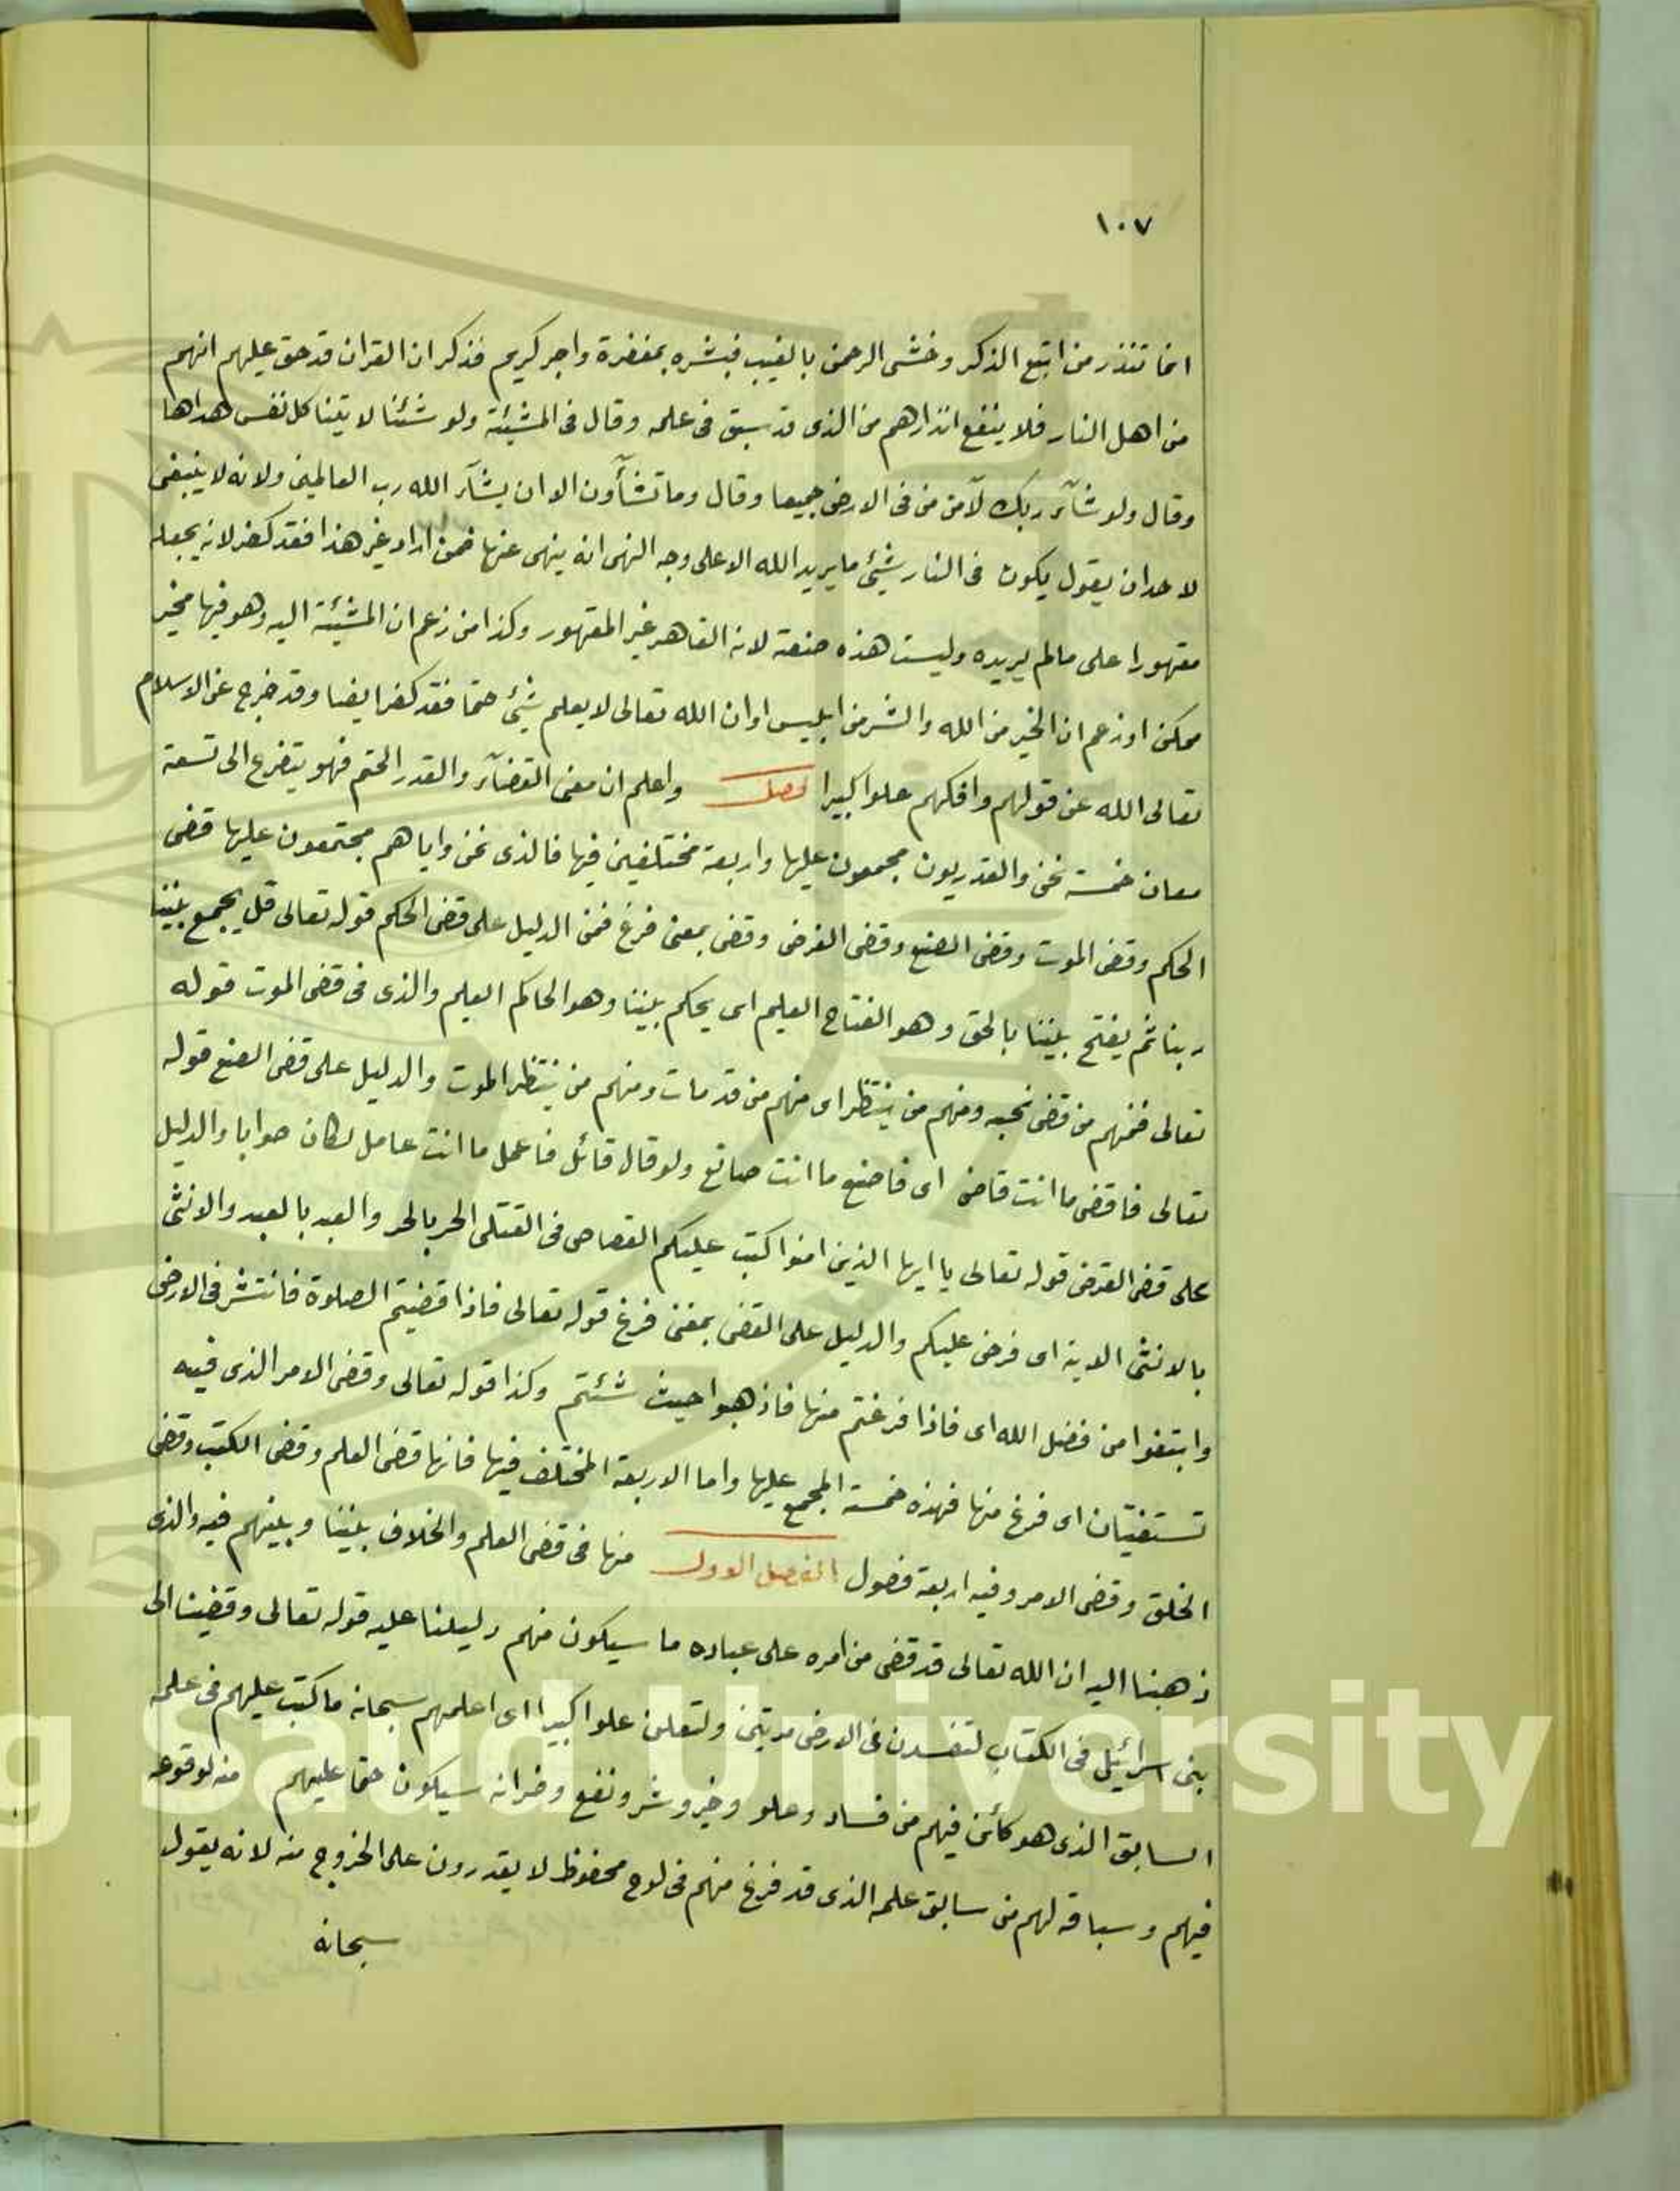 ١٠٧
انما تنذر من اتبع الذكر وخشى الرحمن بالغيب فبشره بمغفرة واجر كريم فذكر ان القران قد حق عليهم انهم
من اهل النار فلا ينفع انذارهم من الذى قد سبق فى علمه وقال فى المشيئة ولو شئنا لاتينا كل نفس هداها
وقال ولو شآء ربك لآمن من فى الارض جميعا وقال وما تشآؤن الا ان يشآء الله رب العالمين ولانه لا ينبغى
لاحد ان يقول يكون فى النار شيئ ما يريد الله الا على وجه النهى انه ينهى عنها فمن اراد غير هذا فقد كفر لانه يجعله
مقهورا على مالم يريده وليست هذه صنعة لانه القاهر غير المقهور وكذا من زعم ان المشيئة اليه وهو فيها مخير
ممكن او زعم ان الخير من الله والشر من ابليس او ان الله تعالى لا يعلم شيئ حتما فقد كفر ايضا وقد خرج عن الاسلام
تعالى الله عن قولهم وافكهم علوا كبيرا فصل واعلم ان معنى القضآء والقدر الحتم فهو يتفرع الى تسعة
معان خمسة نحن والقدريون مجمعون عليها واربعة مختلفين فيها فالذى نحن واياهم مجتمعون عليها قضى
الحكم وقضى الموت وقضى الصنع وقضى الفرض وقضى بمعنى فرغ فمن الدليل على قضى الحكم قوله تعالى قل يجمع بيننا
ربنا ثم يفتح بيننا بالحق وهو الفتاح العليم اى يحكم بيننا وهو الحاكم العليم والذى فى قضى الموت قوله
تعالى فمنهم من قضى نحبه ومنهم من ينتظر اى منهم من قد مات ومنهم من ينتظر الموت والدليل على قضى الصنع قوله
تعالى فاقض ما انت قاض اى فاصنع ما انت صانع ولو قال قائل فاعمل ما انت عامل لكان صوابا والدليل
على قضى الفرض قوله تعالى يا ايها الذين امنوا كتب عليكم القصاص فى القتلى الحر بالحر والعبد بالعبد والانثى
بالانثى الاية اى فرض عليكم والدليل على القضى بمعنى فرغ قوله تعالى فاذا قضيتم الصلوة فانتشر فى الارض
وابتغوا من فضل الله اى فاذا فرغتم منها فاذهبوا حيث شئتم وكذا قوله تعالى وقضى الامر الذى فيه
تستفتيان اى فرغ منها فهذه خمسة المجمع عليها واما الاربعة المختلف فيها فانها قضى العلم وقضى الكتب وقضى
الخلق وقضى الامر وفيه اربعة فصول الفصل الاول منها فى قضى العلم والخلاف بيننا وبينهم فيه والذى
ذهبنا اليه ان الله تعالى قد قضى من امره على عباده ما سيكون منهم دليلنا عليه قوله تعالى وقضينا الى
بنى اسرائيل فى الكتاب لتفسدن فى الارض مرتين ولتعلن علوا كبيرا اى اعلمهم سبحانه ما كتب عليهم فى علمه
السابق الذى هو كائن فيهم من فساد وعلو وخير وشر ونفع وضر انه سيكون حتما عليهم منه لوقوعه
فيهم وسباقه لهم من سابق علمه الذى قد فرغ منهم فى لوح محفوظ لا يقدرون على الخروج منه لانه يقول
سبحانه
g Saud University